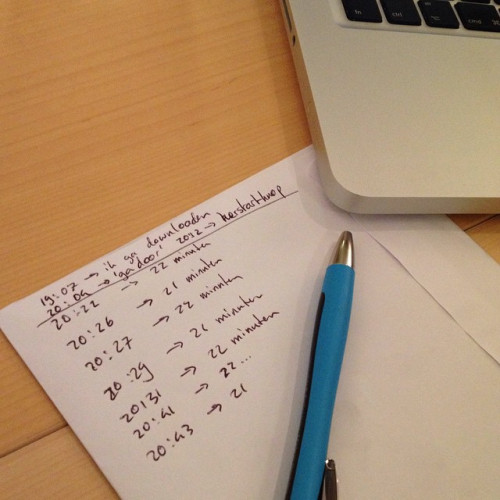 19:07 → ik ga downloaden
20:09 → 'ga door' 2012 → herstartknop
20:22 → 22 minuten
20:26 → 21 minuten
20:27 → 22 minuten
20:29 → 21 minuten
20:31 → 22 minuten
20:41 → 22...
20:43 → 21
fn
ctrl
alt
cmd